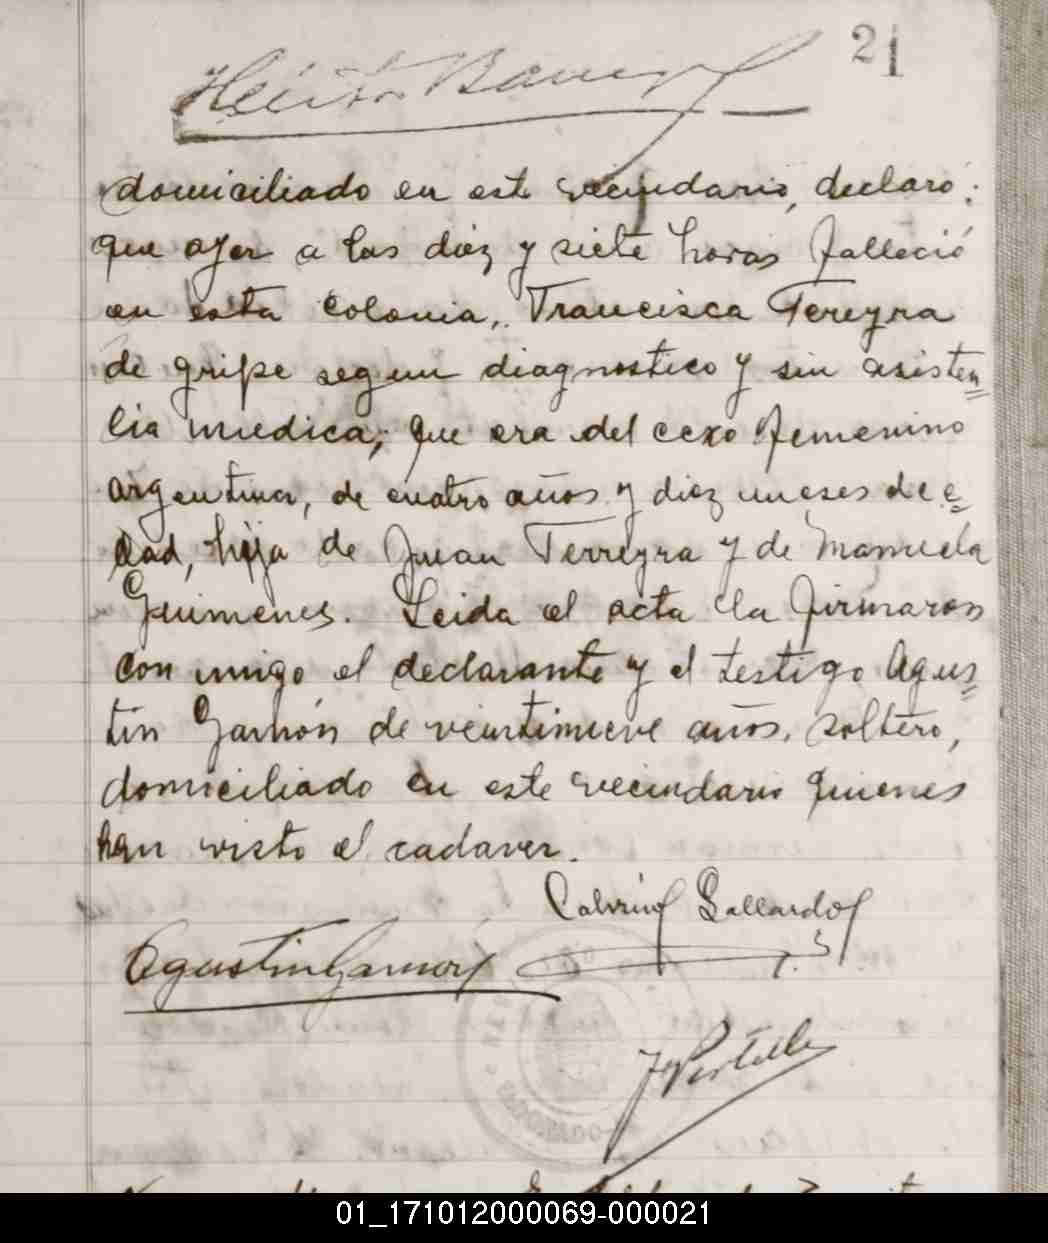 21
Héctor
domiciliado en este vecindario, declaró:
que ayer a las diez y siete horas falleció
en esta colonia, Francisca Fereyra
de gripe segun diagnostico y sin asisten=
cia medica; que era del cexo femenino
argentina, de cuatro años y diez meses de e=
dad, hija de Juan Ferreyra y de Manuela
Guimenes. Leida el acta la firmaron
con migo el declarante y el testigo Agus=
tin Gamón de veintinueve años, soltero,
domiciliado en este vecindario quienes
han visto el cadaver.
Gallardo
Agustin Gamón
01_171012000069-000021